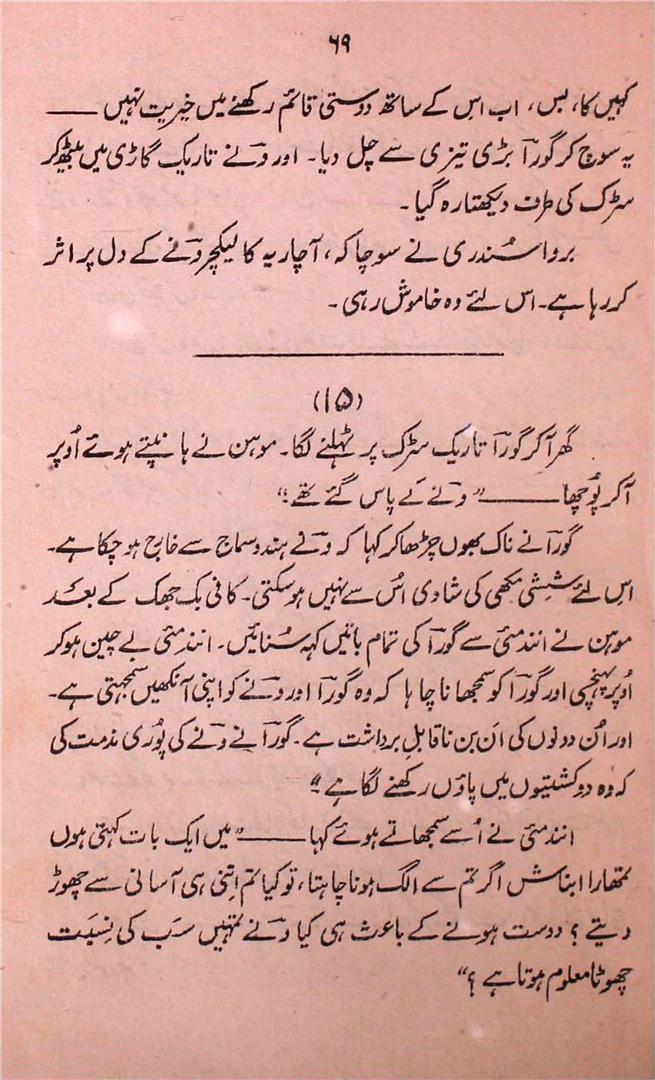 ۶۹
کہیں کا، بس، اب اس کے ساتھ دوستی قائم رکھنے میں خیریت نہیں ——
یہ سوچ کر گورا بڑی تیزی سے چل دیا۔ اور ونے تاریک گاڑی میں بیٹھ کر
سڑک کی طرف دیکھتا رہ گیا۔
بروا سُندری نے سوچا کہ، آچاریہ کا لیکچر ونے کے دل پر اثر
کر رہا ہے۔ اس لئے وہ خاموش رہی۔
(۱۵)
گھر آ کر گورا تاریک سڑک پر ٹہلنے لگا۔ موہن نے ہانپتے ہوئے اُوپر
آ کر پُوچھا —— ”ونے کے پاس گئے تھے؟“
گورا نے ناک بھوں چڑھا کر کہا کہ ونے ہندو سماج سے خارج ہو چکا ہے۔
اس لئے ششی مکھی کی شادی اُس سے نہیں ہو سکتی۔ کافی بک جھک کے بعد
موہن نے انندمئی سے گورا کی تمام باتیں کہہ سُنائیں۔ انندمئی بے چین ہو کر
اُوپر پہنچی اور گورا کو سمجھانا چاہا کہ وہ گورا اور ونے کو اپنی آنکھیں سمجھتی ہے۔
اور اُن دونوں کی اَن بن ناقابلِ برداشت ہے۔ گورا نے ونے کی پُوری مذمت کی
کہ وہ دو کشتیوں میں پاؤں رکھنے لگا ہے“
انندمئی نے اُسے سمجھاتے ہوئے کہا —— ”میں ایک بات کہتی ہوں
تمھارا ابناش اگر تم سے الگ ہونا چاہتا، تو کیا تم اِتنی ہی آسانی سے چھوڑ
دیتے؟ دوست ہونے کے باعث ہی کیا ونے تمہیں سَب کی نِسبَت
چھوٹا معلوم ہوتا ہے؟“